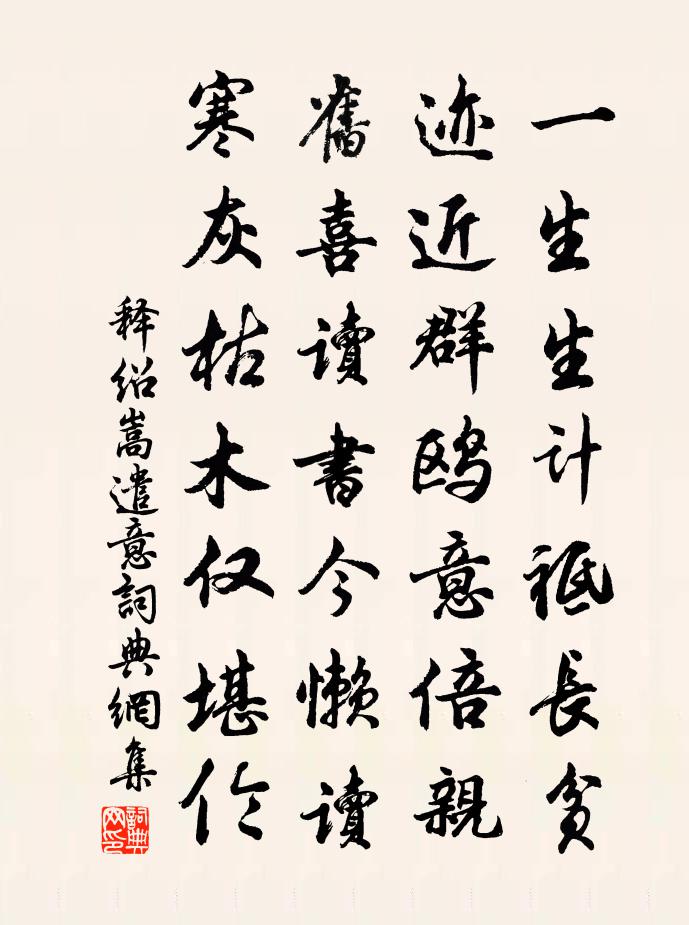 一生生计祗長贫
迹近群鸥意倍親
舊喜讀書今懒讀
寒灰枯木仅堪伦
释绍嵩遣意詞典網集
詞典网印